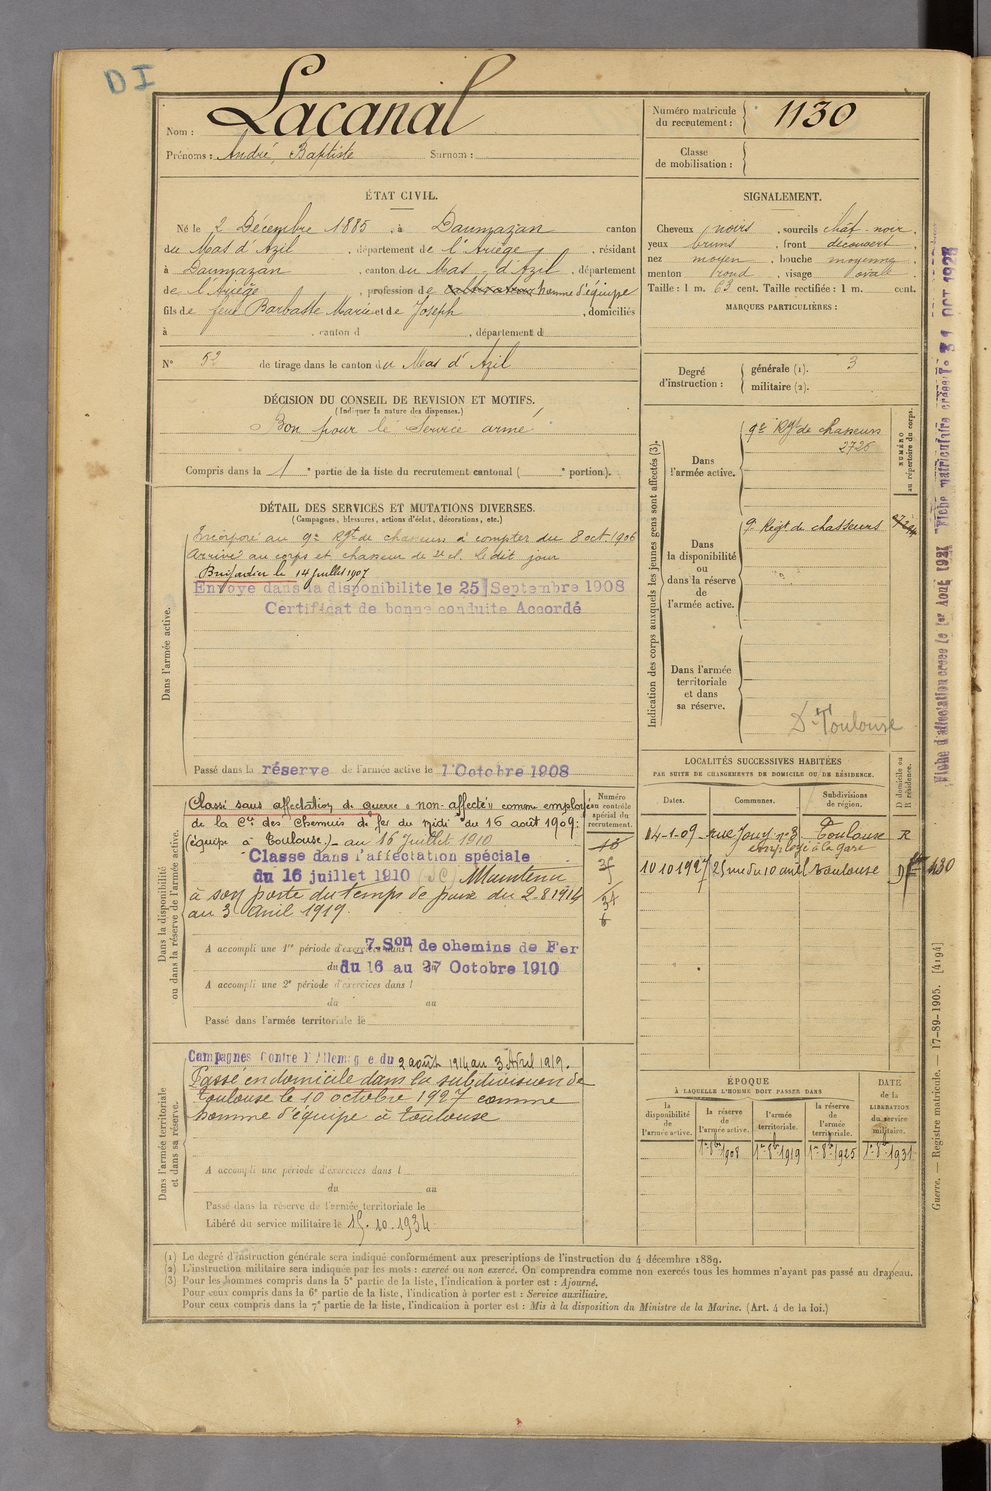 DI
Nom : Lacanal
Prénoms : André, Baptiste Surnom :
Numéro matricule du recrutement : 1130
Classe de mobilisation :
ÉTAT CIVIL.
Né le 2 Décembre 1885, à Daumazan canton
du Mas d'Azil, département de l'Ariège, résidant
à Daumazan, canton du Mas d'Azil, département
de l'Ariège, profession de cultivateur homme d'équipe
fils de feue Barbaste Marie et de Joseph, domiciliés
à , canton d , département d
N° 52 de tirage dans le canton du Mas d'Azil
SIGNALEMENT.
Cheveux noirs, sourcils chât-noir
yeux bruns, front découvert
nez moyen, bouche moyenne
menton rond, visage ovale
Taille : 1 m. 63 cent. Taille rectifiée : 1 m. cent.
MARQUES PARTICULIÈRES :
Degré d'instruction : générale (1). 3
militaire (2).
DÉCISION DU CONSEIL DE REVISION ET MOTIFS.
(Indiquer la nature des dispenses.)
Bon pour le Service armé
Compris dans la 1 e partie de la liste du recrutement cantonal ( e portion).
DÉTAIL DES SERVICES ET MUTATIONS DIVERSES.
(Campagnes, blessures, actions d'éclat, décorations, etc.)
Dans l'armée active.
Incorporé au 9e Rgt de chasseurs à compter du 8 oct 1906
Arrivé au corps et chasseur de 2e cl. le dit jour
Brigadier le 14 juillet 1907
Envoyé dans la disponibilité le 25 Septembre 1908
Certificat de bonne conduite Accordé
Passé dans la réserve de l'armée active le 1 Octobre 1908
Indication des corps auxquels les jeunes gens sont affectés (3).
NUMÉRO au répertoire du corps.
Dans l'armée active.
9e Rgt de chasseurs
2726
Dans la disponibilité ou dans la réserve de l'armée active.
9e Régt de chasseurs
Dans l'armée territoriale et dans sa réserve.
Dt Toulouse
LOCALITÉS SUCCESSIVES HABITÉES
PAR SUITE DE CHANGEMENTS DE DOMICILE OU DE RÉSIDENCE.
Dates. Communes. Subdivisions de région. D domicile ou R résidence.
14-1-09 rue Jouy n°3 Toulouse R
employé à la gare
10 10 1927 25 rue du 10 avril Toulouse D
Dans la disponibilité ou dans la réserve de l'armée active.
Numéro au contrôle spécial du recrutement.
Classé sans affectation de guerre "non-affecté" comme employé
de la Cie des Chemins de fer du Midi du 16 août 1909.
(équipe à Toulouse) au 16 Juillet 1910
Classe dans l'affectation spéciale
du 16 juillet 1910 (SC) Maintenu
à son poste du temps de paix du 2-8 1914
au 3 Avril 1919.
A accompli une 1re période d'exercices dans l 7 Son de chemins de Fer
du 16 au 27 Octobre 1910
A accompli une 2e période d'exercices dans l
du au
Passé dans l'armée territoriale le
Dans l'armée territoriale et dans sa réserve.
Campagnes Contre l'Allemagne du 2 août 1914 au 3 Avril 1919.
Passé en domicile dans la subdivision de
Toulouse le 10 octobre 1927 comme
homme d'équipe à Toulouse
A accompli une période d'exercices dans l
du au
Passé dans la réserve de l'armée territoriale le
Libéré du service militaire le 15.10.1934
ÉPOQUE
À LAQUELLE L'HOMME DOIT PASSER DANS
la disponibilité de l'armée active.
la réserve de l'armée active.
l'armée territoriale.
la réserve de l'armée territoriale.
DATE de la LIBÉRATION du service militaire.
1er 8bre 1908 1er 8bre 1919 1er 8bre 1925 1er 8bre 1931
(1) Le degré d'instruction générale sera indiqué conformément aux prescriptions de l'instruction du 4 décembre 1889.
(2) L'instruction militaire sera indiquée par les mots : exercé ou non exercé. On comprendra comme non exercés tous les hommes n'ayant pas passé au drapeau.
(3) Pour les hommes compris dans la 5e partie de la liste, l'indication à porter est : Ajourné.
Pour ceux compris dans la 6e partie de la liste, l'indication à porter est : Service auxiliaire.
Pour ceux compris dans la 7e partie de la liste, l'indication à porter est : Mis à la disposition du Ministre de la Marine. (Art. 4 de la loi.)
Fiche d'affectation créée le 1er Août 1921 Fiche matriculaire créée le 31 OCT 1928
Guerre. — Registre matricule. — 17-89-1905. [4194]